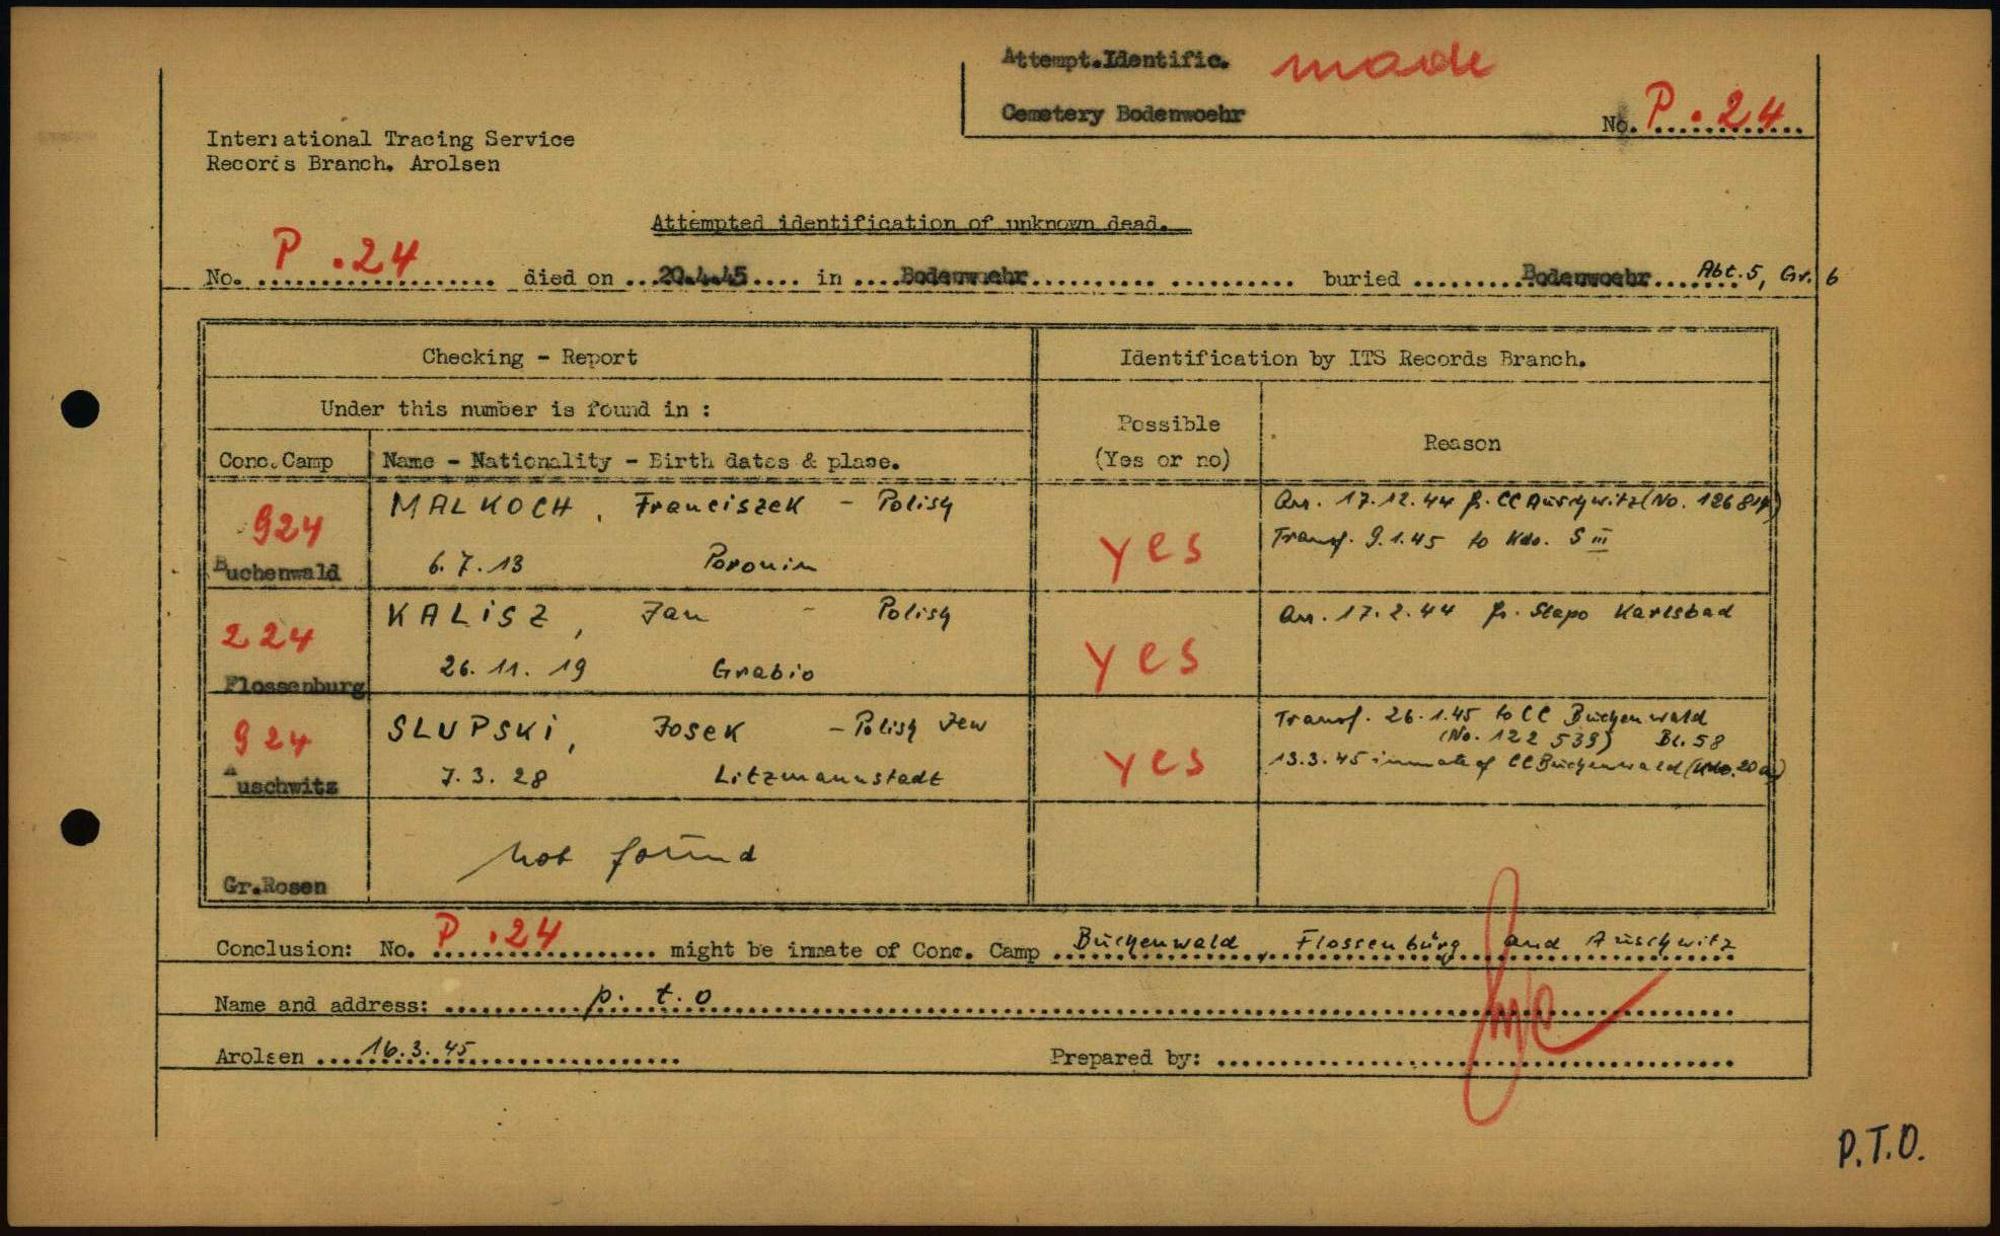 Attempt.Identific. made
Cemetery Bodenwoehr
No. P . 24
International Tracing Service
Records Branch. Arolsen
Attempted identification of unknown dead.
No. P . 24 died on 20.4.45 in Bodenwoehr buried Bodenwoehr Abt. 5, Gr. 6
Checking - Report
Identification by ITS Records Branch.
Under this number is found in :
Possible
(Yes or no)
Reason
Conc.Camp
Name - Nationality - Birth dates & plase.
924
Buchenwald
MALKOCH, Franciszek - Polish
6.7.13 Poronin
yes
Arr. 17.12.44 fr. CC Auschwitz (No. 126814)
Transf. 9.1.45 to Kdo. S III
224
Flossenburg
KALISZ, Jan - Polish
26.11.19 Grabio
yes
Arr. 17.2.44 fr. Stapo Karlsbad
924
Auschwitz
SLUPSKI, Josek - Polish Jew
7.3.28 Litzmannstadt
yes
Transf. 26.1.45 to CC Buchenwald
(No. 122 539) Bl. 58
13.3.45 inmate of CC Buchenwald (Kdo. 20
Gr.Rosen
not found
Conclusion: No. P . 24 might be inmate of Conc. Camp Buchenwald, Flossenbürg and Auschwitz
Name and address: p. t. o
Arolsen 16.3.45
Prepared by:
P.T.O.